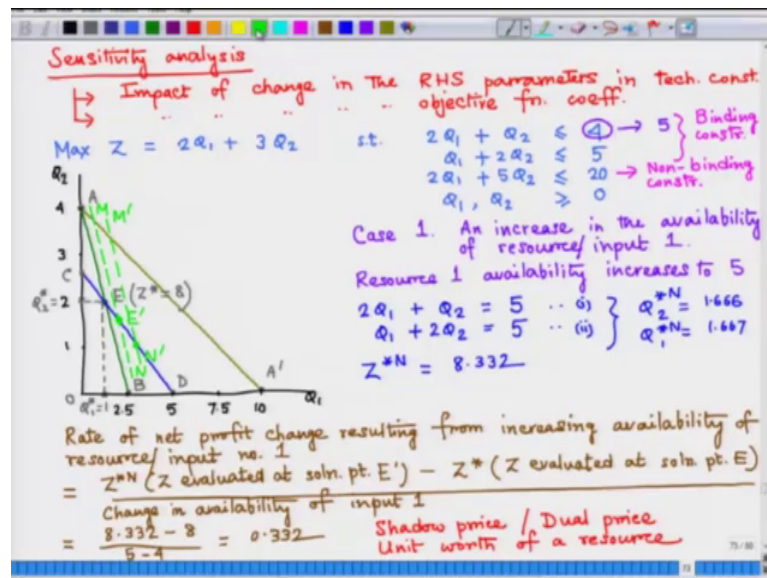 Sensitivity analysis
Impact of change in the RHS parrameters in tech. const.
" " " " " objective fn. coeff.
Max Z = 2Q₁ + 3Q₂ s.t. 2Q₁ + Q₂ ≤ 4 → 5 } Binding constr.
Q₁ + 2Q₂ ≤ 5
2Q₁ + 5Q₂ ≤ 20 → Non-binding constr.
Q₁, Q₂ ≥ 0
Q₂
A M M'
4
3
C
E (Z* = 8)
Q₂* = 2
E'
1
N'
N
B D A'
0 Q₁* = 1 2.5 5 7.5 10 Q₁
Case 1. An increase in the availability
of resource/input 1.
Resource 1 availability increases to 5
2Q₁ + Q₂ = 5 .. (i) } Q₂*ᴺ = 1.666
Q₁ + 2Q₂ = 5 .. (ii) Q₁*ᴺ = 1.667
Z*ᴺ = 8.332
Rate of net profit change resulting from increasing availability of
resource/input no. 1
= Z*ᴺ (Z evaluated at soln. pt. E') − Z* (Z evaluated at soln. pt. E)
Change in availability of input 1
= 8.332 − 8 / 5 − 4 = 0.332
Shadow price / Dual price
Unit worth of a resource
73/80
73